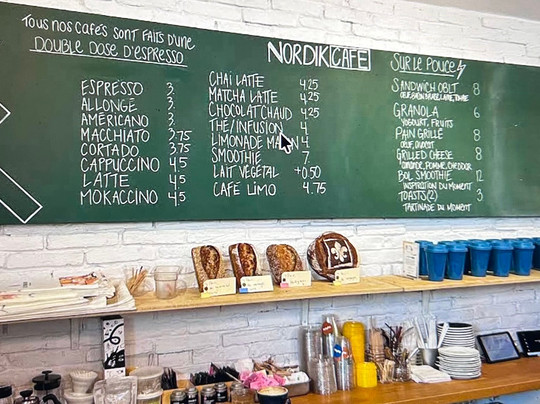 Tous nos cafés sont faits d'une
double dose d'espresso
Espresso 3
Allongé 3
Américano 3
Macchiato 3.75
Cortado 3.75
Cappuccino 4.5
Latte 4.5
Mokaccino 4.5
NORDIK CAFÉ
Chai latte 4.25
Matcha latte 4.25
Chocolat chaud 4.25
Thé/infusion 4
Limonade 4
Smoothie 7
Lait végétal +0.50
Café limo 4.75
Sur le pouce
Sandwich OBLT 8
Granola 6
Yogourt, fruits
Pain grillé 8
Grilled cheese 8
pomme, cheddar
Bol smoothie 12
Inspiration du moment
Toasts (2) 3
Tartinade du moment